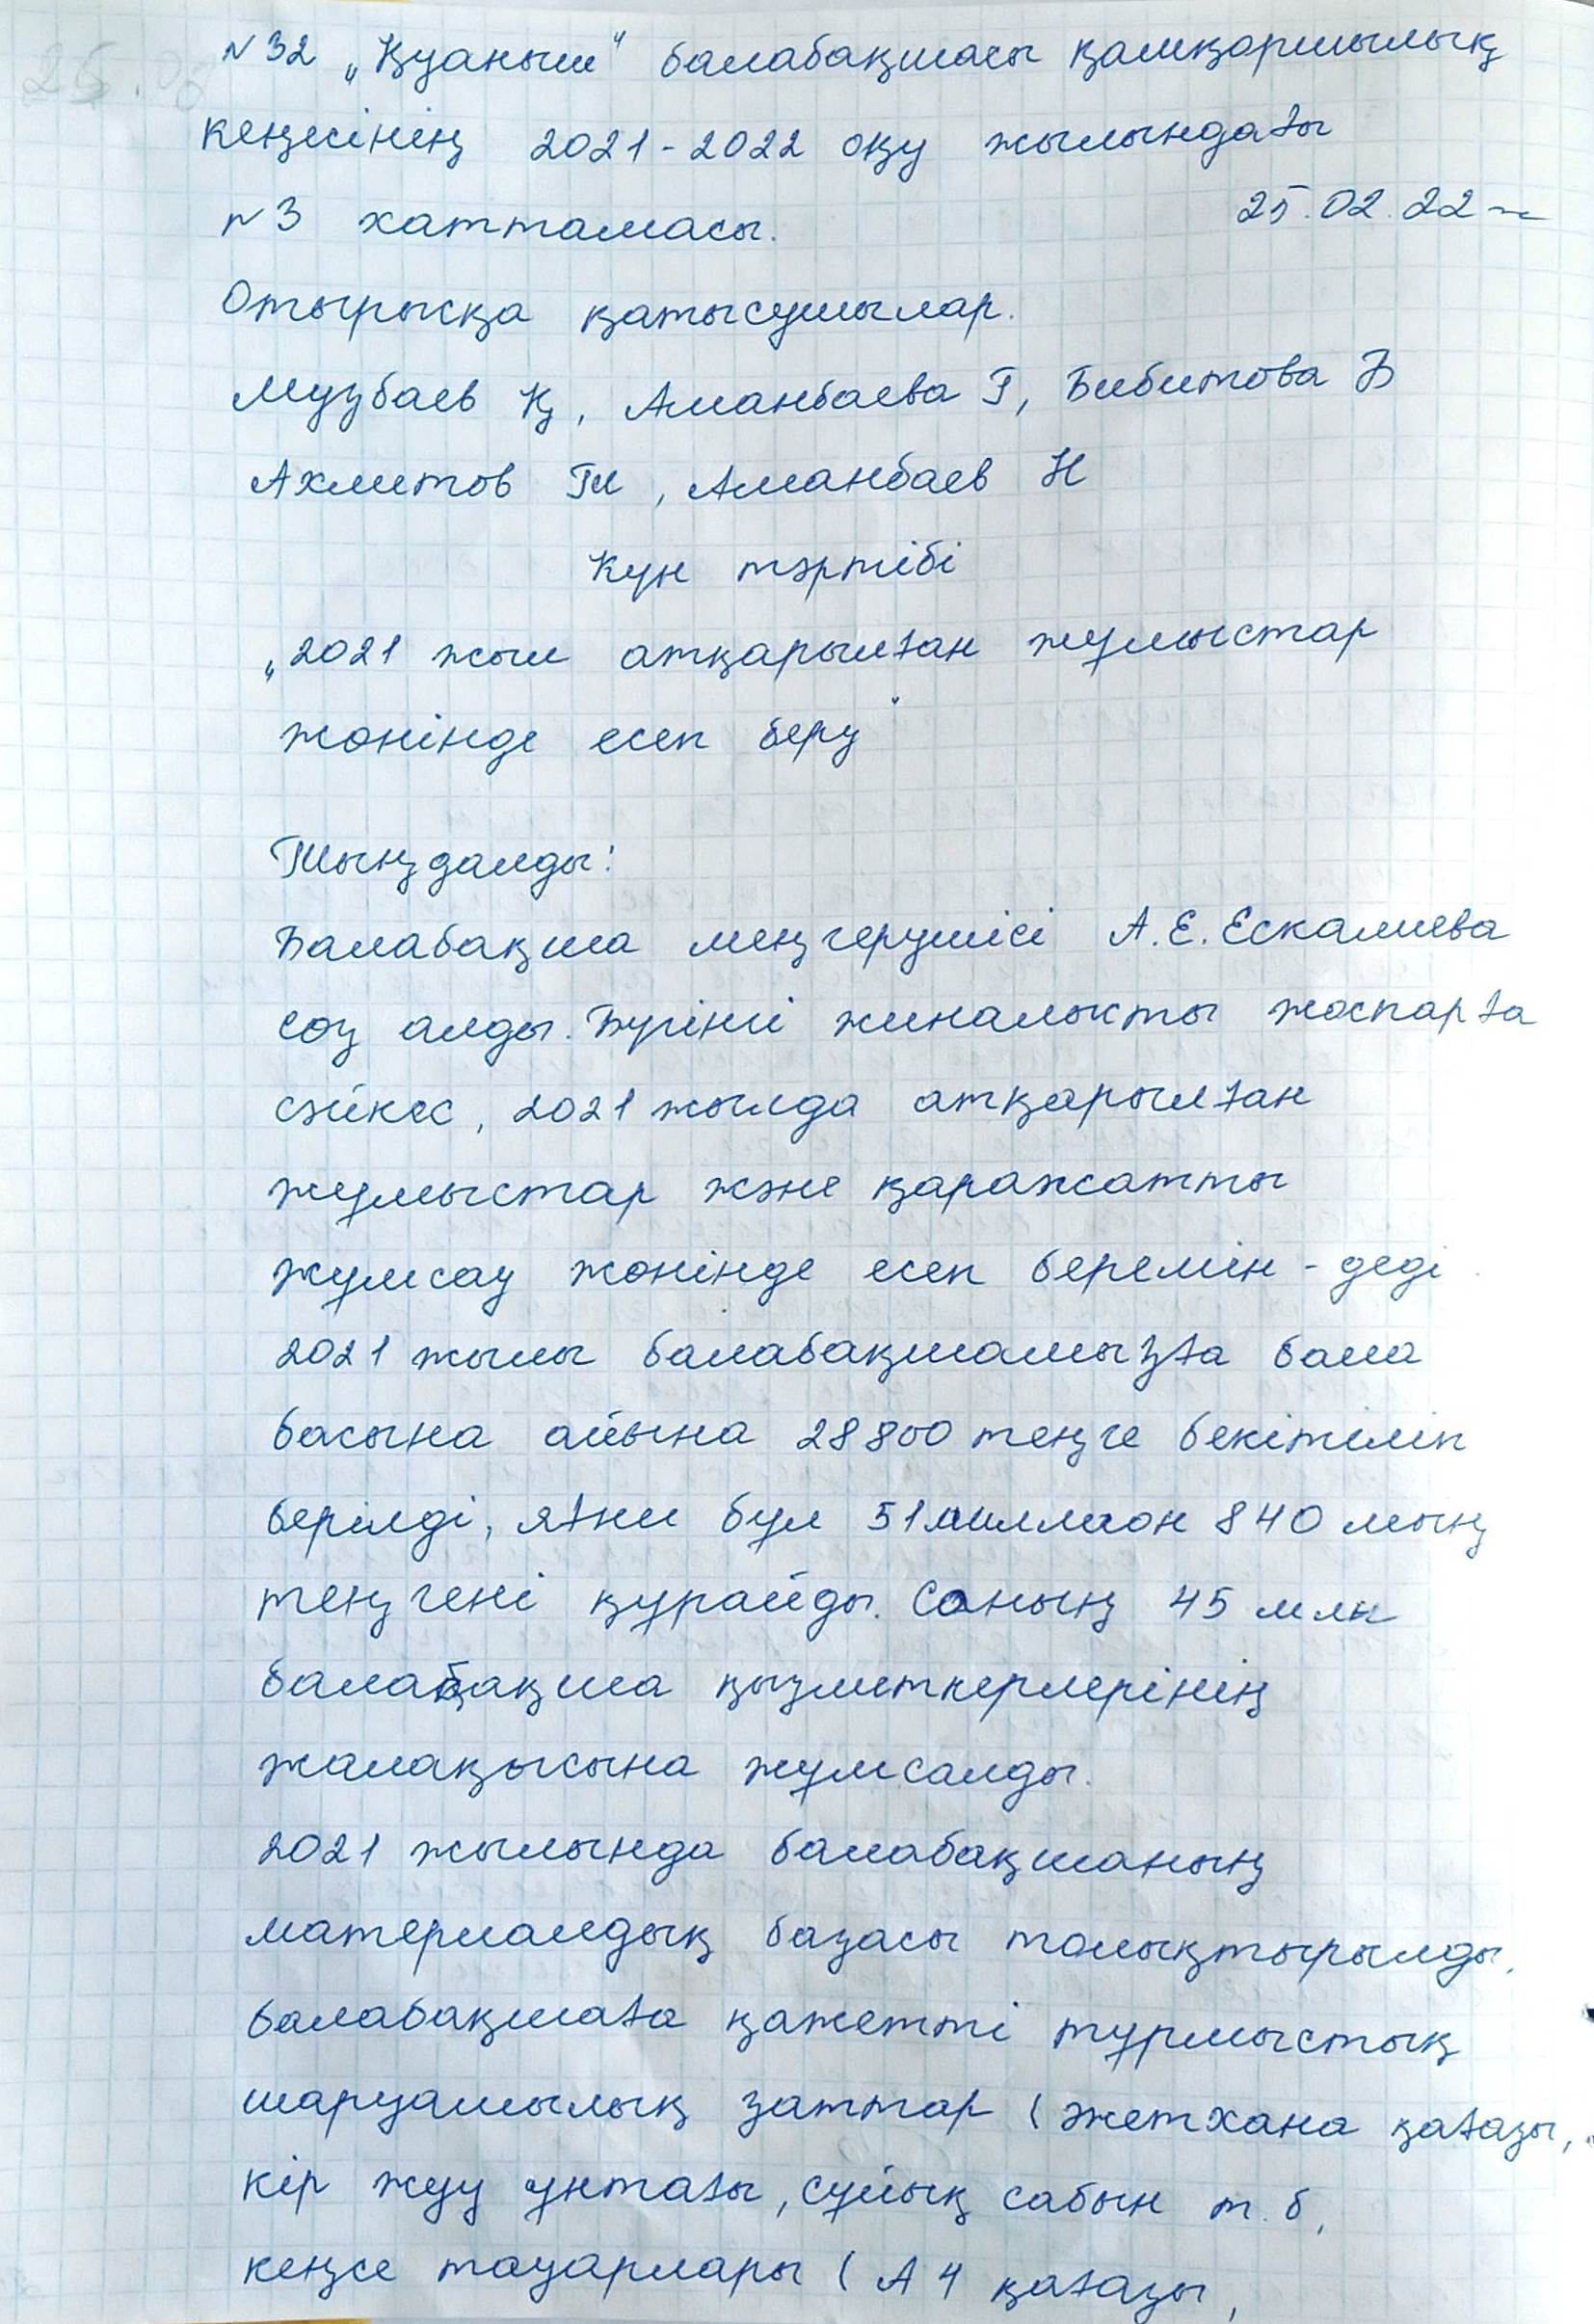 N 32 „Қуаныш" балабақшасы қамқоршылық
кеңесінің 2021-2022 оқу жылындағы
N 3 хаттамасы. 25.02.22
Отырысқа қатысушылар.
Музбаев Қ, Аманбаева Г, Бибитова Б
Ахметов Т, Аманбаев Н
Күн тәртібі
„2021 жыл атқарылған жұмыстар
жөнінде есеп беру"
Тыңдалды:
Балабақша меңгерушісі А.Е. Ескалиева
сөз алды. Бүгінгі жиналысты жоспарға
сәйкес, 2021 жылда атқарылған
жұмыстар және қаражатты
жұмсау жөнінде есеп беремін - деді
2021 жылы балабақшамызға бала
басына айына 28800 теңге бекітіліп
берілді, яғни бұл 51 миллион 840 мың
теңгені құрайды. Соның 45 млн
балабақша қызметкерлерінің
жалақысына жұмсалды.
2021 жылында балабақшаның
материалдық базасы толықтырылды,
балабақшаға қажетті тұрмыстық
шаруашылық заттар (әжетхана қағазы,
кір жуу ұнтағы, сұйық сабын т.б,
кеңсе тауарлары (А 4 қағазы,